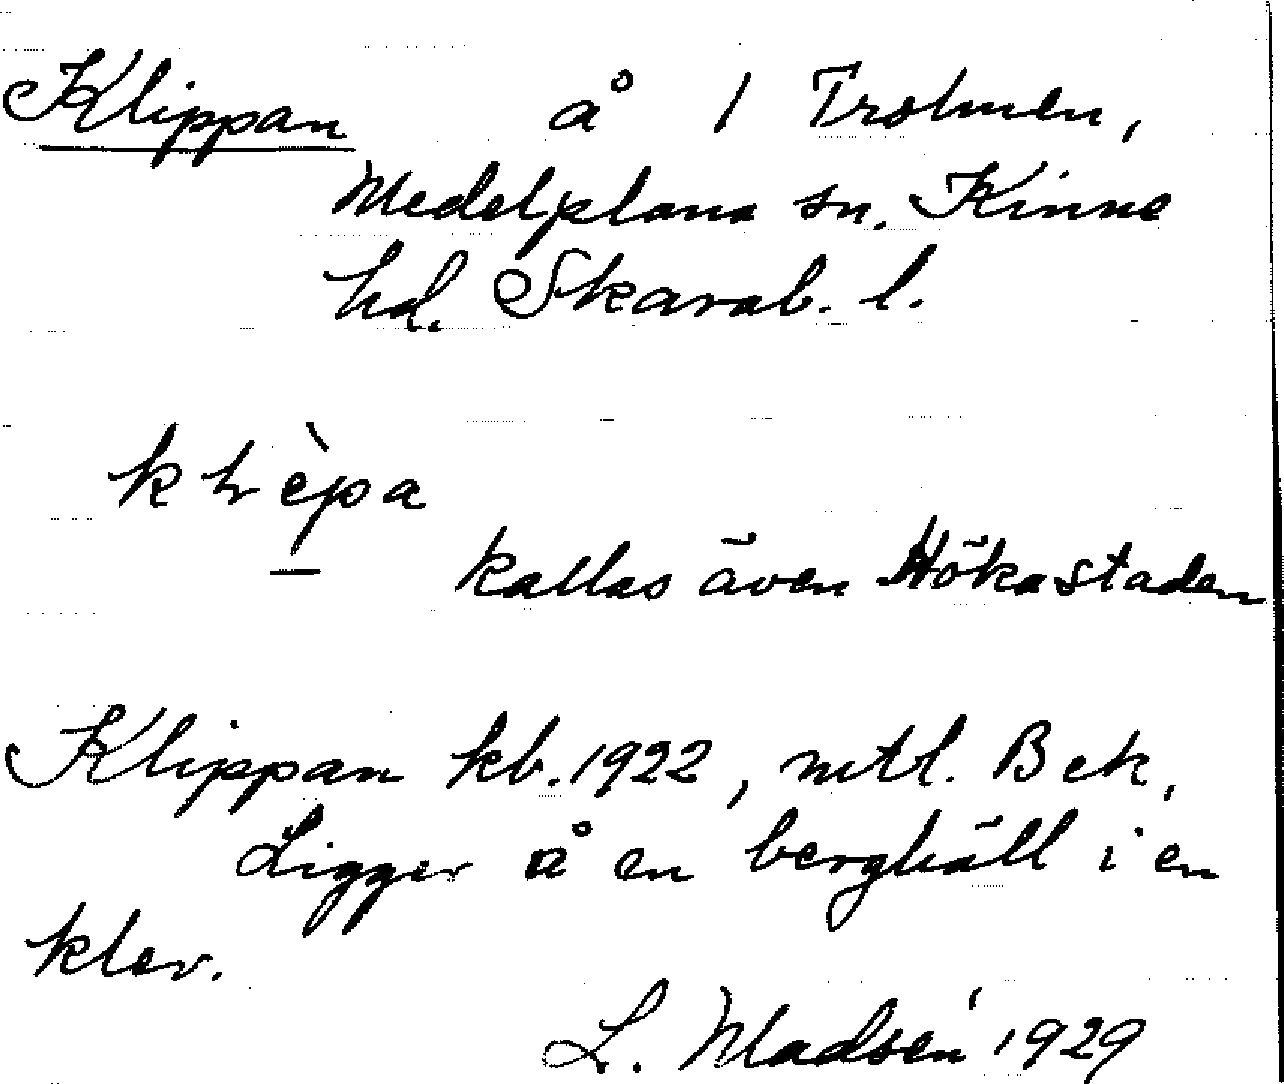 Klippan å 1 Trolmen,
Medelplana sn. Kinne
hd. Skarab. l.
kallas även Hökastaden
Klippan kb. 1922, mtl. Bek,
Ligger å en berghäll i en
klev.
L. Madsén 1929